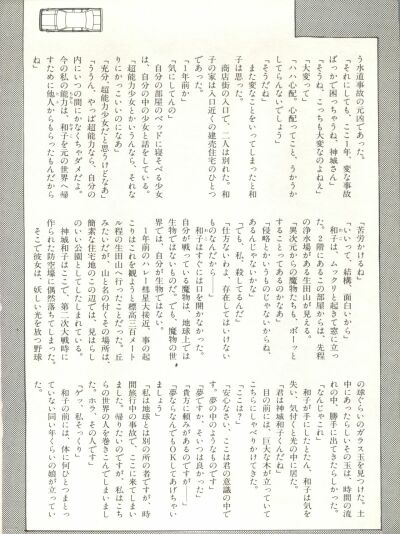 う水道事故の元凶であった。
「それにしても、ここ1年、変な事故
ばっかで困っちゃうね、神城さん」
「そうね、こっちも大変なのよねぇ」
「大変って」
「ハハ心配、心配ってこと、うかうか
してらんないでしょう」
「そうだね」
また変なことをいってしまったと和
子は思った。
商店街の入口で、二人は別れた。和
子の家は入口近くの建売住宅のひとつ
であった。
「1年前か」
「気にしてんの」
自分の部屋のベッドに寝そべる少女
は、自分の中の少女と話をしている。
「超能力少女とかいうんなら、それな
りにかっこいいのになあ」
「充分、超能力少女だと思うけどなあ」
「ううん、やっぱ超能力なら、自分の
内にいつの間にかなくちゃダメだよ。
今の私の能力は、和子を元の世界へ帰
すために他人からもらったもんだから
ね」
「苦労かけるね」
「いいって、結構、面白いから」
和子は、ムックリと起きて窓に立っ
た。2階にあるこの部屋からは、先程
の浄水場がある生田山が見える。
「異次元からの魔物たちも、ボーッと
することってあるのかなあ」
「侵略とかいうものじゃないからね、
あるんじゃないかな」
「でも、私、殺してるんだ」
「仕方ないよ、存在してはいけない
ものなんだから――」
和子はすぐには口を開かなかった。
自分が戦っている魔物は、地球上では
生物ではないものだ。でも、魔物の世
界では、自分が生物ではない。
1年前のハレー彗星大接近、事の起
こりはこれを観ようと標高三百メート
ル程の生田山へ行ったことだった。丘
みたいだが、山と名の付くその場所は、
簡素な住宅地のこの辺では、見はらし
のいい公園としてしたしまれている。
神城和子はここで、第二次大戦時に
作られた防空壕に偶然落ちてしまった。
そこで彼女は、妖しい光を放つ野球
の球ぐらいのガラス玉を見つけた。土
中にあったらしいその玉は、時間の流
れの中、勝手に出てきたらしかった。
「なんじゃこれ」
和子が手にしたとたん、和子は気を
失い、気付くと光の中に居た。
「君は神城和子くんだね」
目の前には、巨大な木が立っていて
こちらにしゃべりかけてきた。
「ここは?」
「安心なさい、ここは君の意識の中で
す。夢の中のようなものです」
「夢ですか、そいつは良かった」
「貴方に頼みがあるのですが――」
「夢ならなんでもOKしてあげちゃい
ましょう」
「私は地球とは別の所の者ですが、時
間旅行中の事故で、ここに来てしまい
ました。帰りたいのですが、私はこち
らの世界の人を巻きこんでしまいまし
た。ホラ、その人です」
「ゲッ、私そっくり」
和子の前には、体に何ひとつまとっ
ていない同い年くらいの娘が立ってい
た。